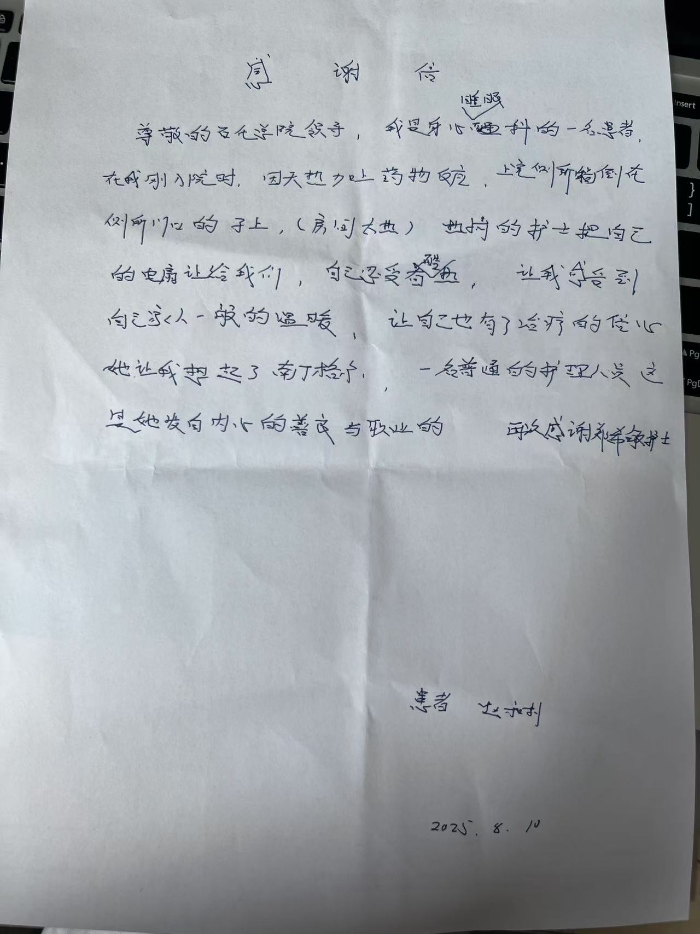 感谢信
尊敬的石化总院领导，我是身心睡眠科的一名患者，
在我刚入院时，因天热加上药物反应，上完侧所稿倒在
侧所门口的子上，（房间太热）热情的护士把自己
的电扇让给我们，自己还受着酷热，让我感受到
自己家人一般的温暖，让自己也有了治疗的信心
她让我想起了南丁格尔，一名普通的护理人员这
是她发自内心的善良与职业的 再次感谢郑希 护士
患者 赵 利
2025.8.10